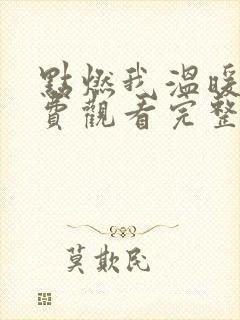 點燃我溫暖
費觀看完整
莫欺民